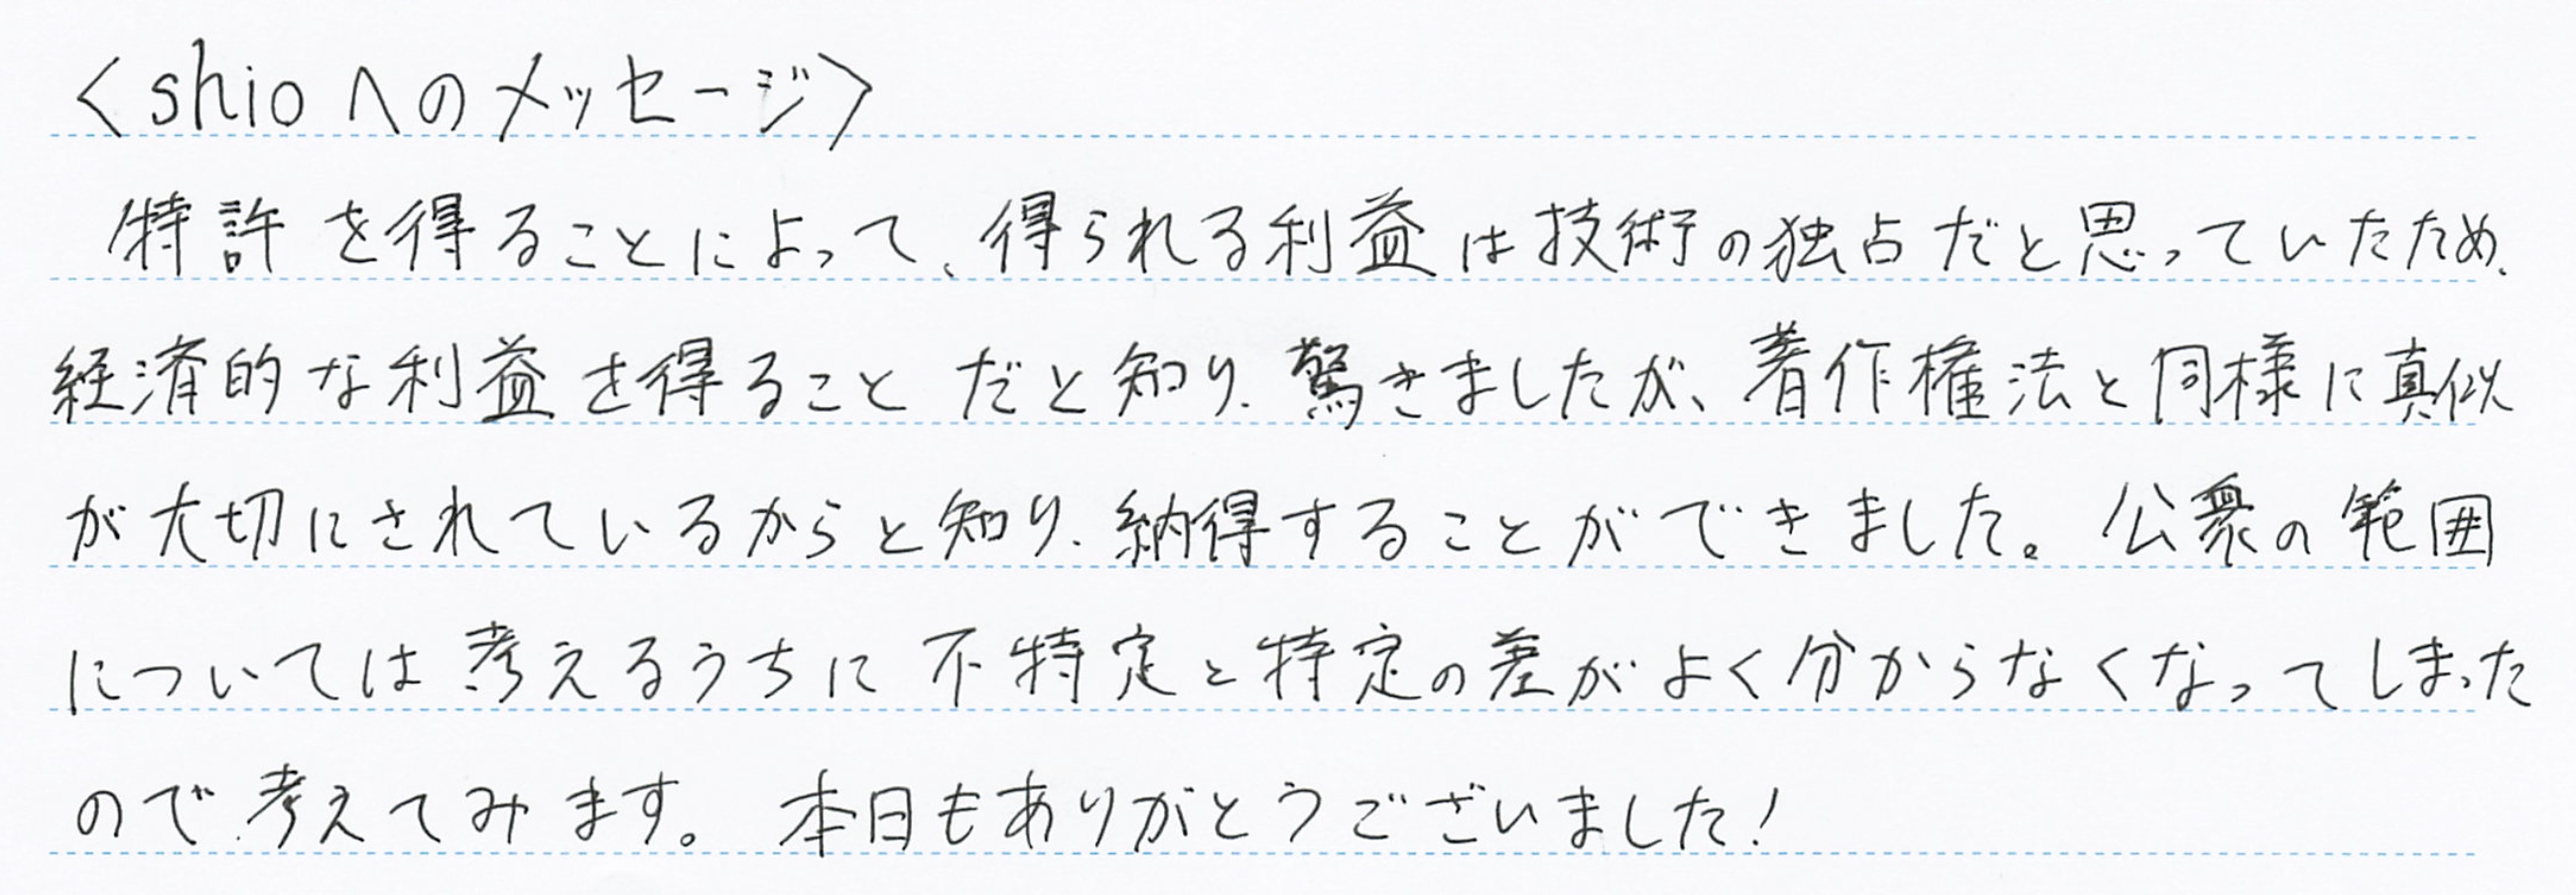 <shioへのメッセージ>
特許を得ることによって、得られる利益は技術の独占だと思っていたため、
経済的な利益を得ることだと知り、驚きましたが、著作権法と同様に真似
が大切にされているからと知り、納得することができました。公衆の範囲
については考えるうちに不特定と特定の差がよく分からなくなってしまった
ので考えてみます。本日もありがとうございました!